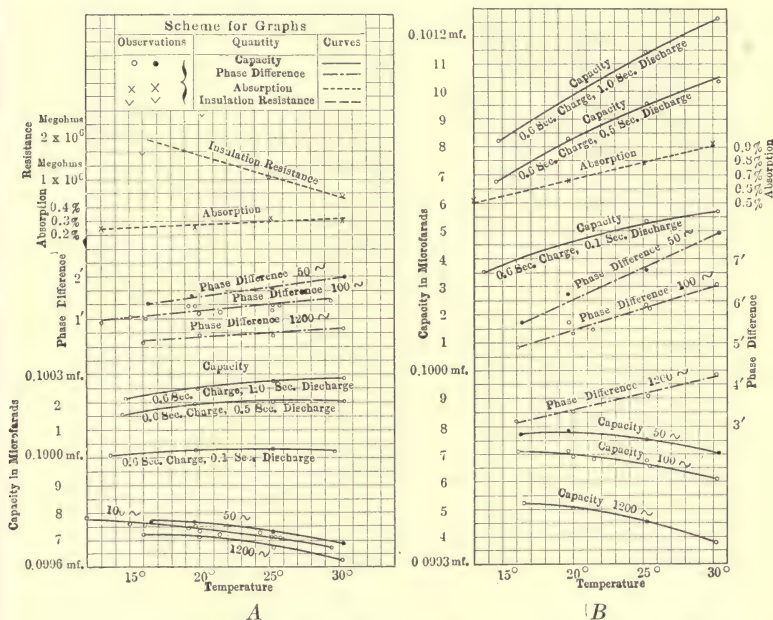 Scheme for Graphs
Observations Quantity Curves
Capacity
Phase Difference
Absorption
Insulation Resistance
Resistance
Megohms
2 x 10⁶
Megohms
1 x 10⁶
Absorption
0.4%
0.3%
0.2%
Phase Difference
2′
1′
Capacity in Microfarads
0.1003 mf.
2
1
0.1000 mf.
9
8
7
0.0996 mf.
Insulation Resistance
Absorption
Phase Difference 50 ~
Phase Difference 100 ~
Phase Difference 1200 ~
Capacity
0.6 Sec. Charge, 1.0 Sec. Discharge
0.6 Sec. Charge, 0.5 Sec. Discharge
0.6 Sec. Charge, 0.1 Sec. Discharge
100 ~
50 ~
1200 ~
15° 20° 25° 30°
Temperature
A
Capacity in Microfarads
0.1012 mf.
11
10
9
8
7
6
5
4
3
2
1
0.1000 mf.
9
8
7
6
5
4
0.0993 mf.
Capacity
0.6 Sec. Charge, 1.0 Sec. Discharge
Capacity
0.6 Sec. Charge, 0.5 Sec. Discharge
Absorption
Capacity
0.6 Sec. Charge, 0.1 Sec. Discharge
Phase Difference 50 ~
Phase Difference 100 ~
Phase Difference 1200 ~
Capacity 50 ~
Capacity 100 ~
Capacity 1200 ~
0.9%
0.8%
0.7%
0.6%
0.5%
Absorption
7′
6′
5′
4′
3′
Phase Difference
15° 20° 25° 30°
Temperature
B